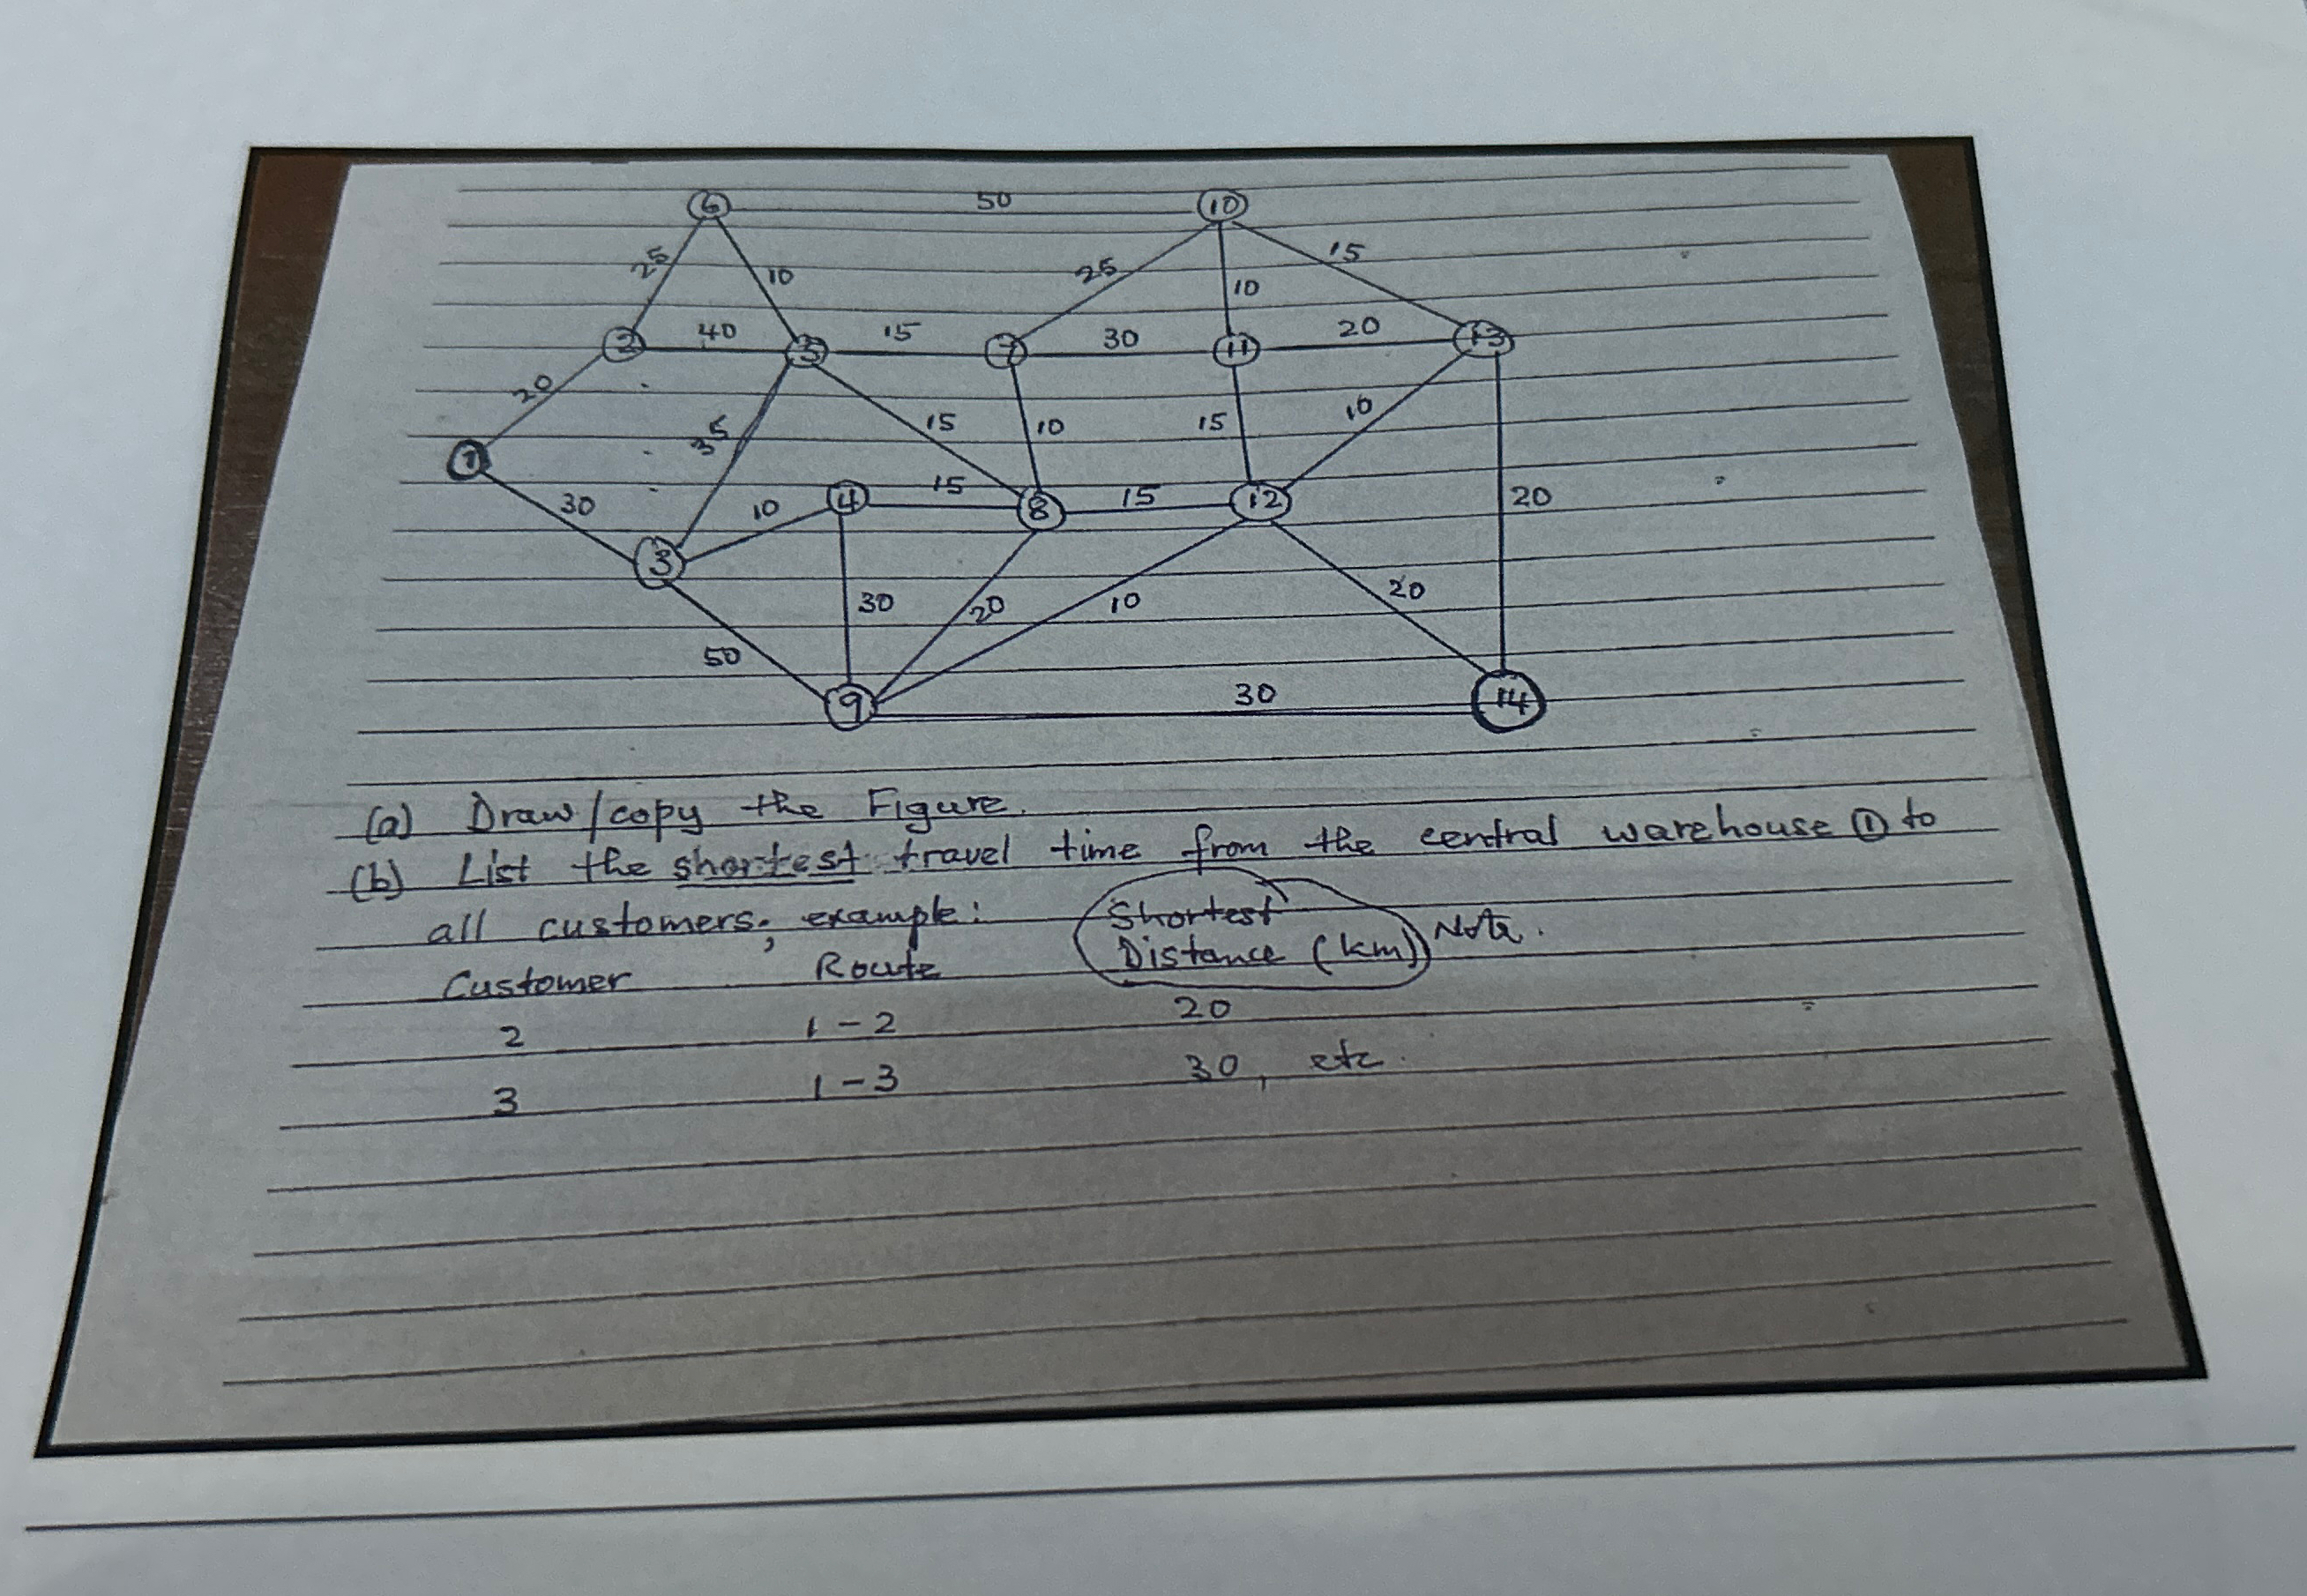 6 50 10
25 10 25 10 15
2 40 5 15 7 30 11 20 13
20 35 15 10 15 10
1 30 10 4 15 8 15 12 20
3 30 20 10 20
50 9 30 14
(a) Draw/copy the Figure.
(b) List the shortest travel time from the central warehouse ① to
all customers; example: Shortest
Customer Route Distance (km) Note.
2 1-2 20
3 1-3 30, etc.